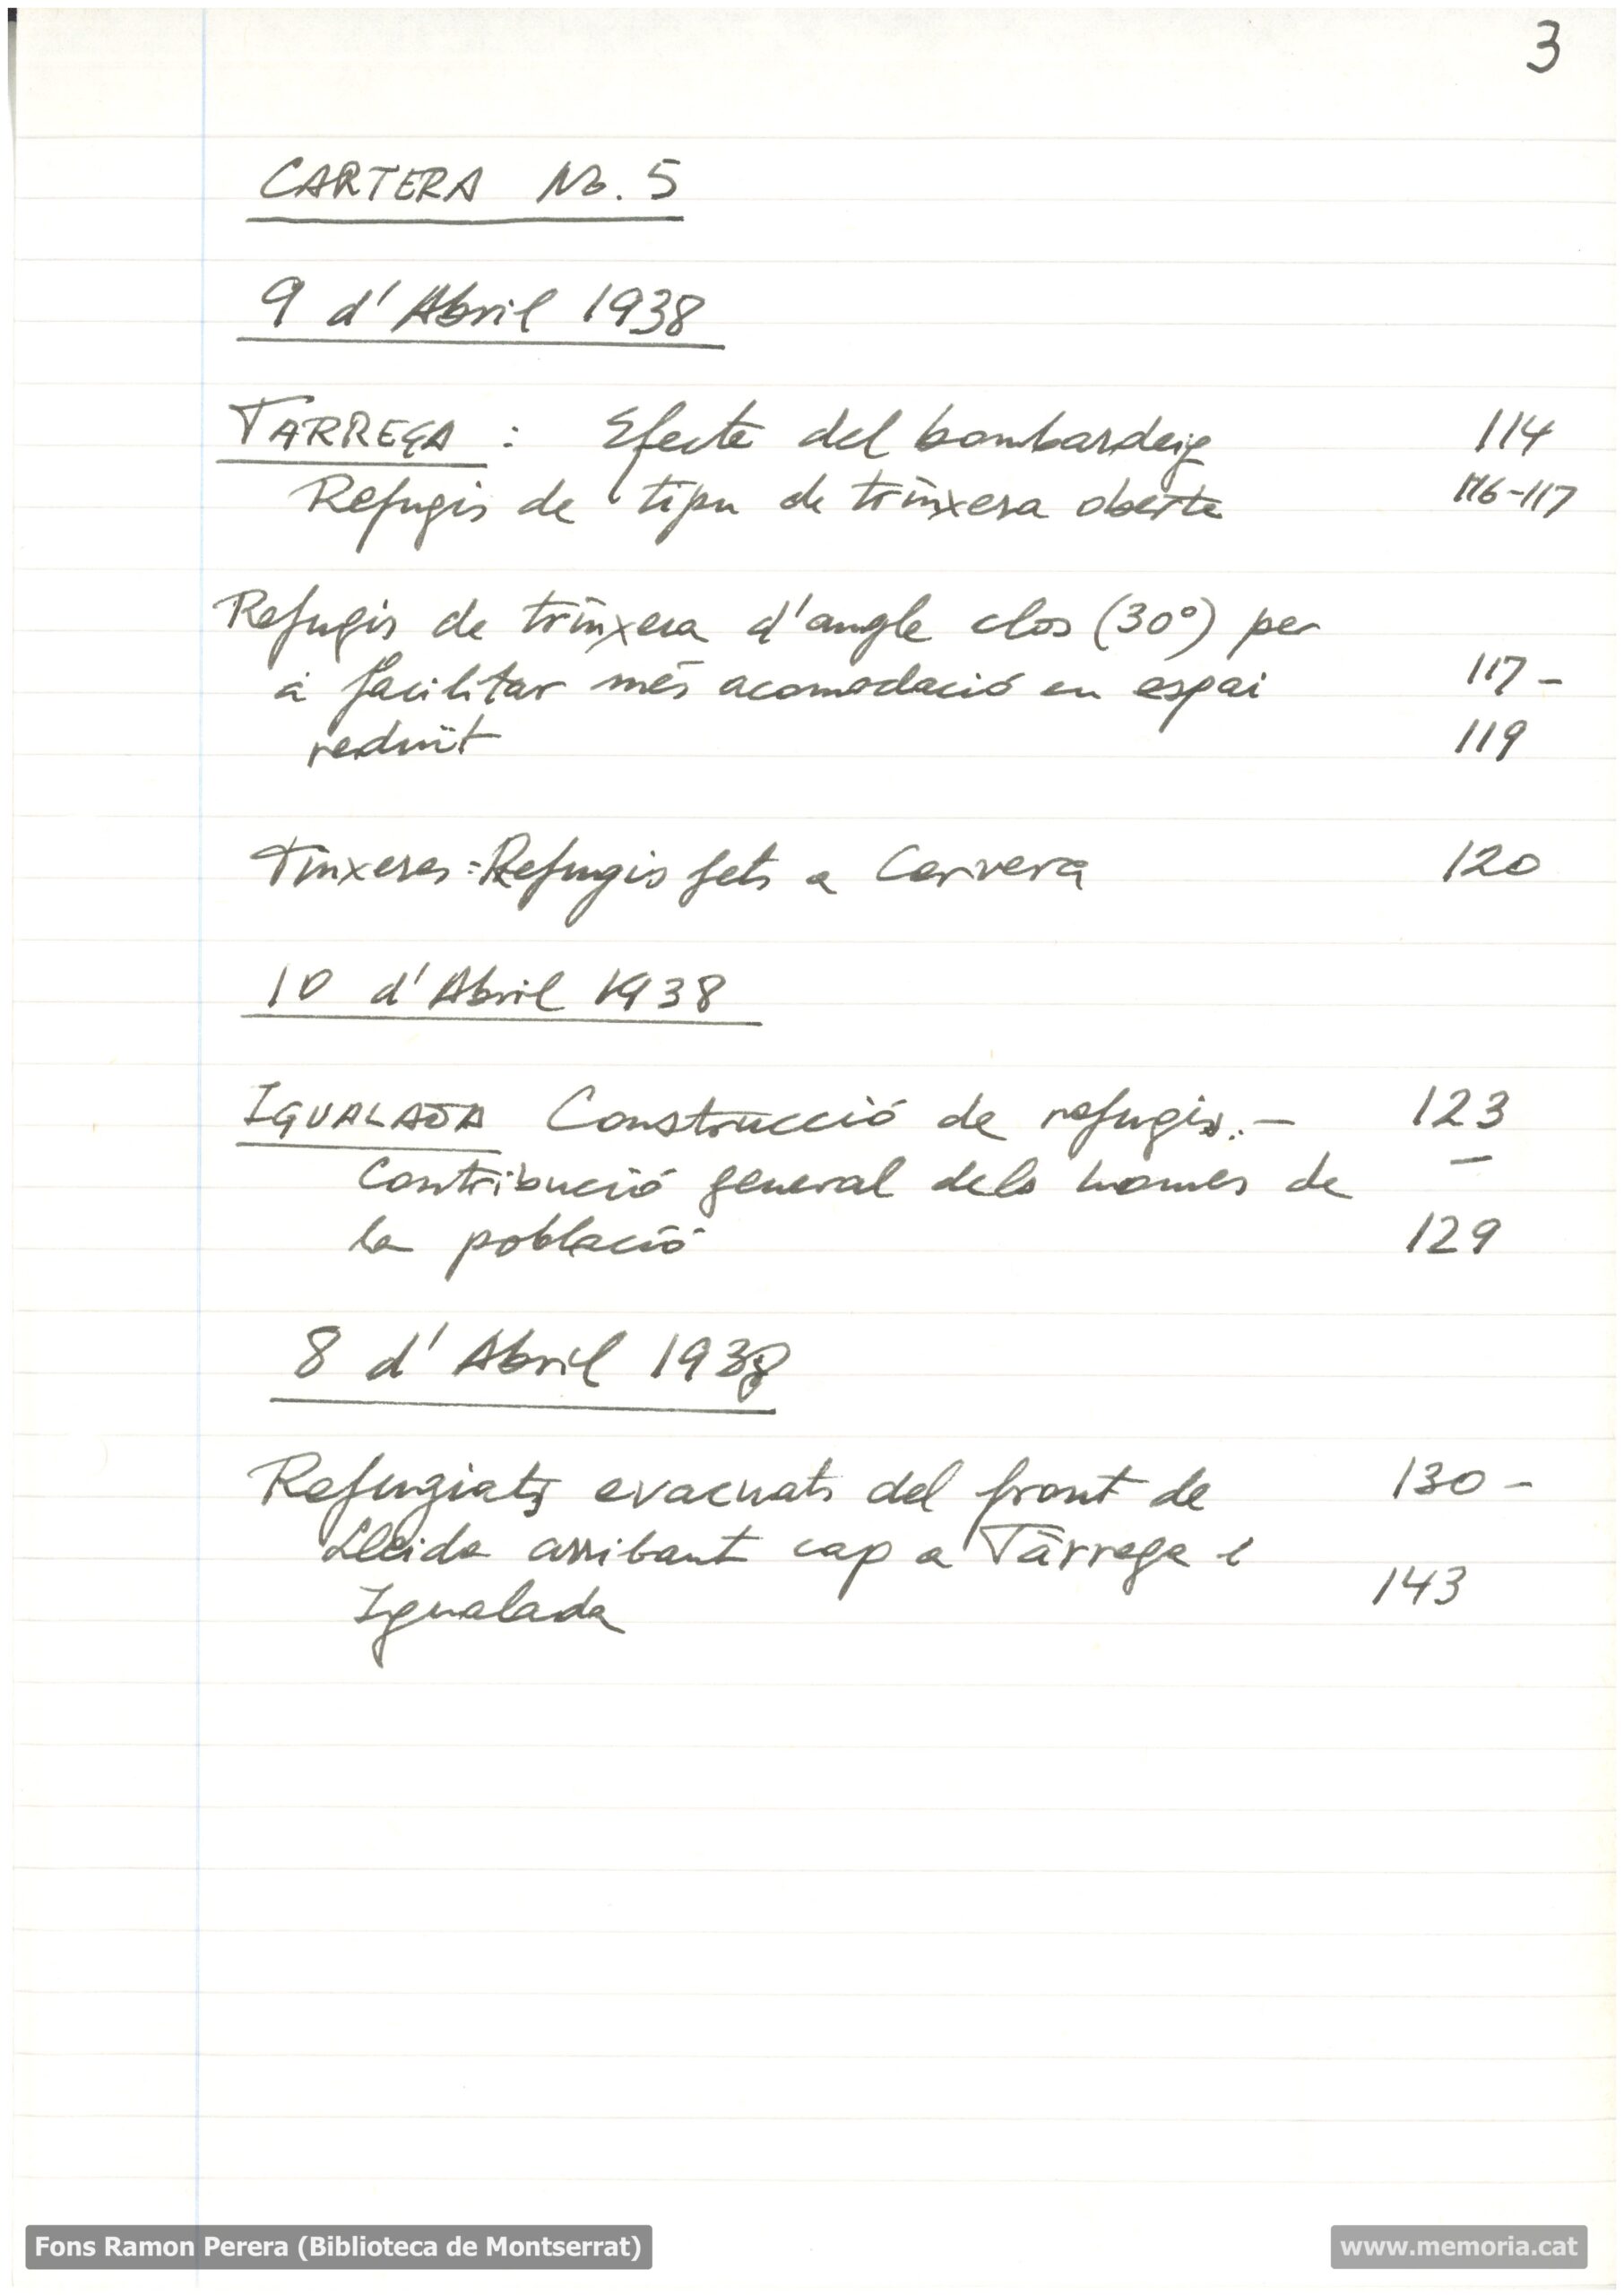 3
CARTERA No. 5
9 d'Abril 1938
TARREGA : Efecte del bombardeig 114
Refugis de tipu de trinxera oberta 116-117
Refugis de trinxera d'angle clos (30°) per
a facilitar més acomodació en espai 117 -
reduït 119
Tinxeres-Refugis fets a Cervera 120
10 d'Abril 1938
IGUALADA Construcció de refugis.- 123
Contribució general dels homes de -
la població 129
8 d'Abril 1938
Refugiats evacuats del front de 130 -
Lleida arribant cap a Tàrrega i
Igualada 143
Fons Ramon Perera (Biblioteca de Montserrat)
www.memoria.cat